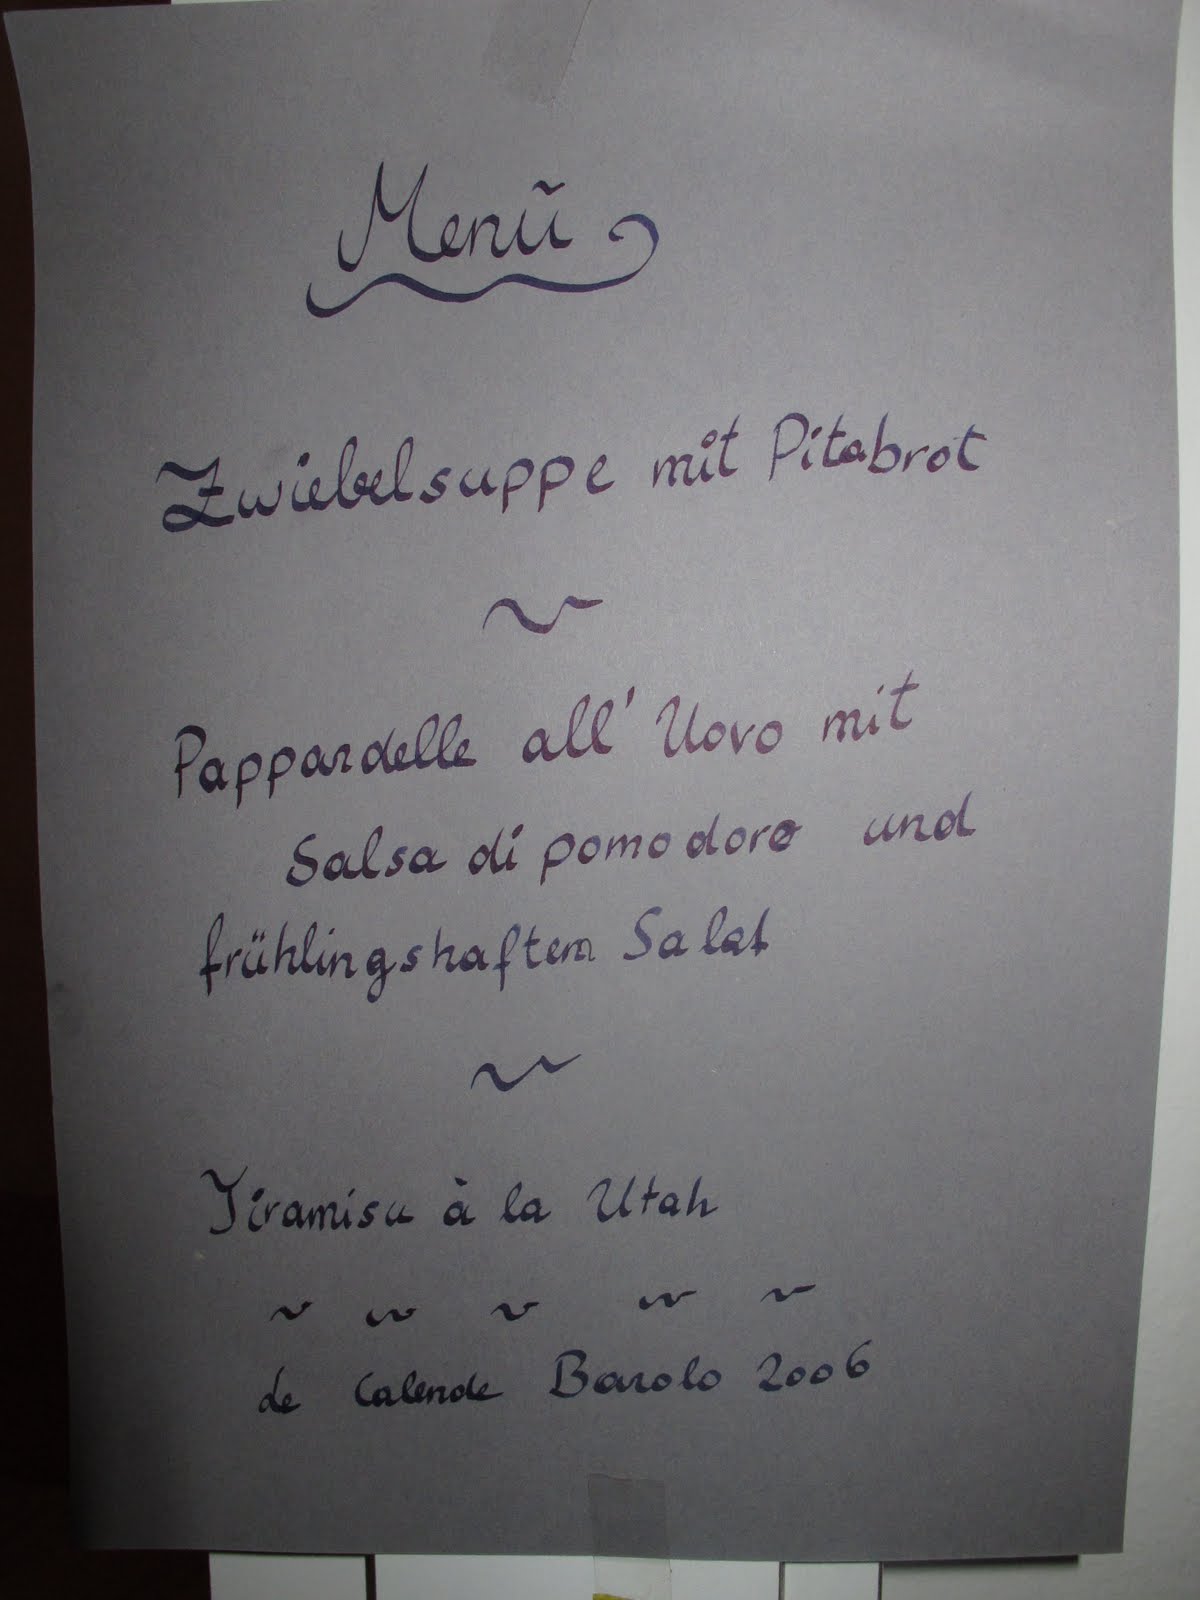 Menü
Zwiebelsuppe mit Pitabrot
~
Pappardelle all' Uovo mit
Salsa di pomodoro und
frühlingshaftem Salat
~
Tiramisu à la Utah
~ ~ ~ ~ ~
de Calende Barolo 2006